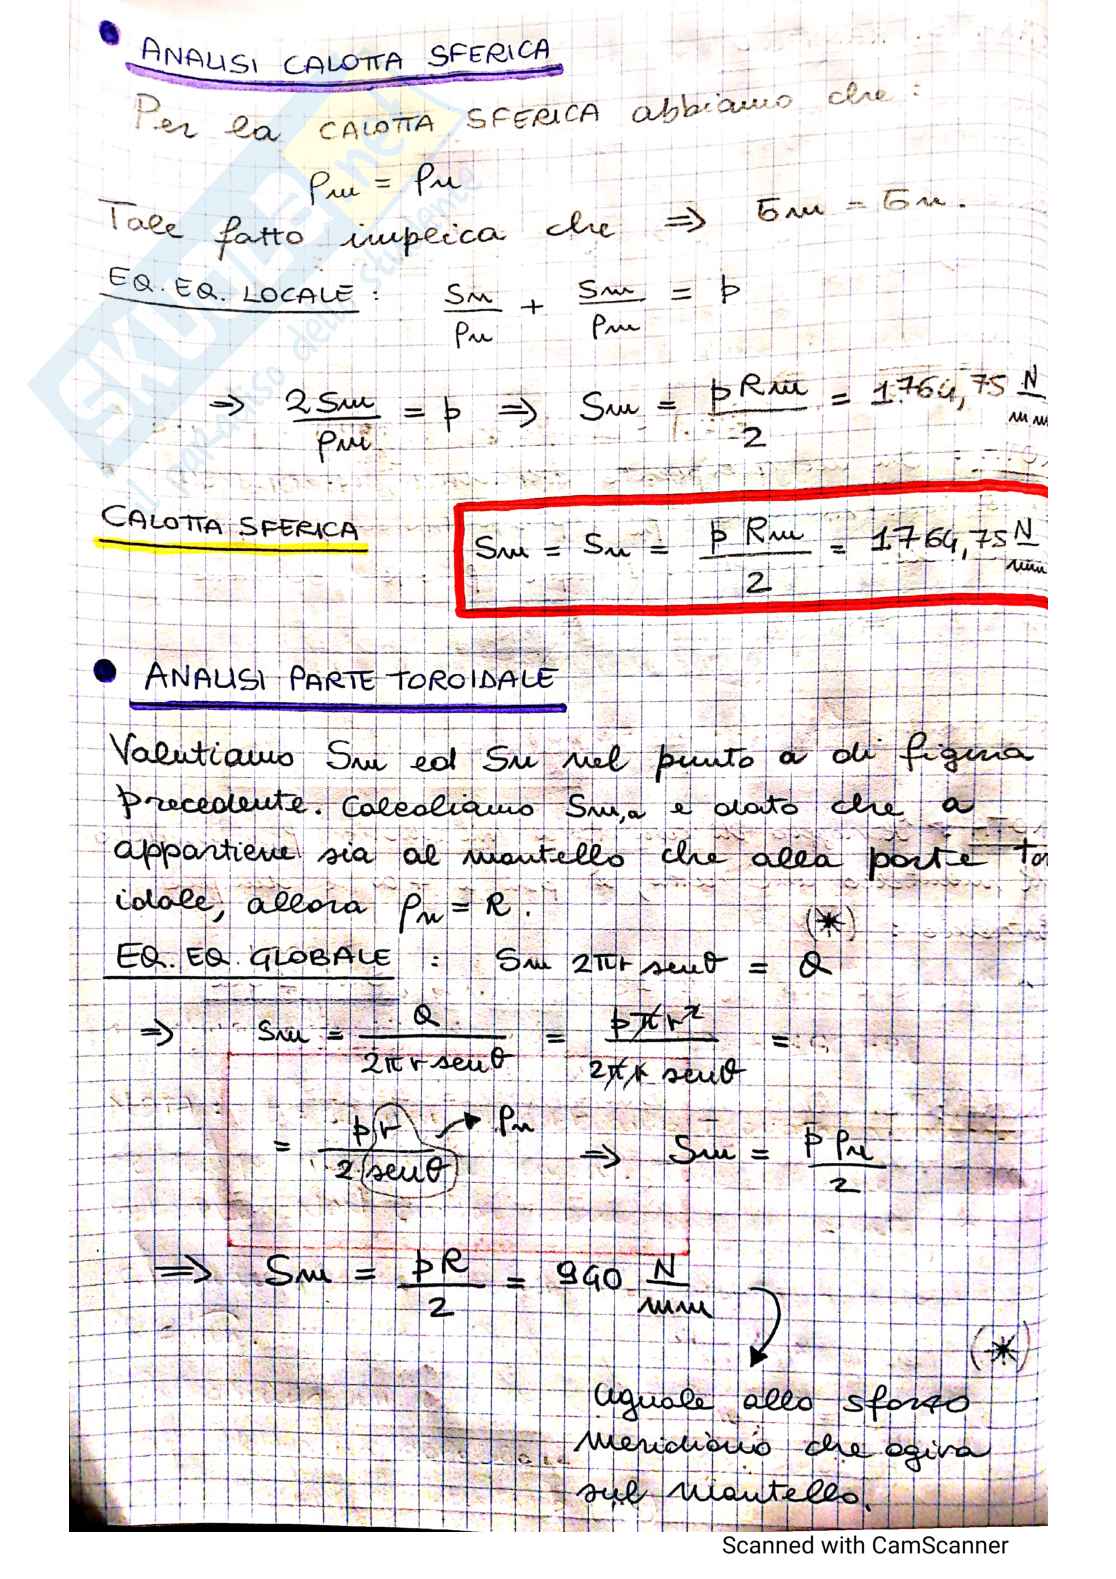 • ANALISI CALOTTA SFERICA
Per la CALOTTA SFERICA abbiamo che:
ρm = ρn
Tale fatto implica che ⇒ σm = σn.
EQ. EQ. LOCALE : Sn/ρn + Sm/ρm = p
⇒ 2Sm/ρm = p ⇒ Sm = pRm/2 = 1764,75 N/mm
CALOTTA SFERICA Sm = Sn = pRm/2 = 1764,75 N/mm
• ANALISI PARTE TOROIDALE
Valutiamo Sm ed Sn nel punto a di figura
precedente. Calcoliamo Sm,a e dato che a
appartiene sia al mantello che alla parte tor
idale, allora ρn = R.
(*)
EQ. EQ. GLOBALE : Sm 2πr senθ = Q
⇒ Sm = Q/2πr senθ = pπr²/2πr senθ =
= pr/2 senθ → ρn ⇒ Sm = pρn/2
⇒ Sm = pR/2 = 940 N/mm
(*)
uguale allo sforzo
meridiano che agiva
sul mantello.
SKUOLA.net
il paradiso dello studente
Scanned with CamScanner